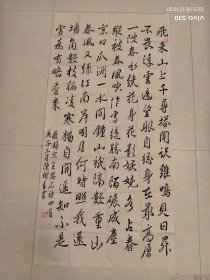 飛来山上千尋塔聞説雞鳴見日昇
不畏浮雲遮望眼自緣身在最高層
一陂春水繞花身花影妖嬈各占春
縱被春風吹作雪絶勝南陌碾成塵
京口瓜洲一水間鍾山祇隔數重山
春風又綠江南岸明月何時照我還
墻角數枝梅凌寒獨自開遥知不是
雪爲有暗香来
宋王安石詩四首
庚子